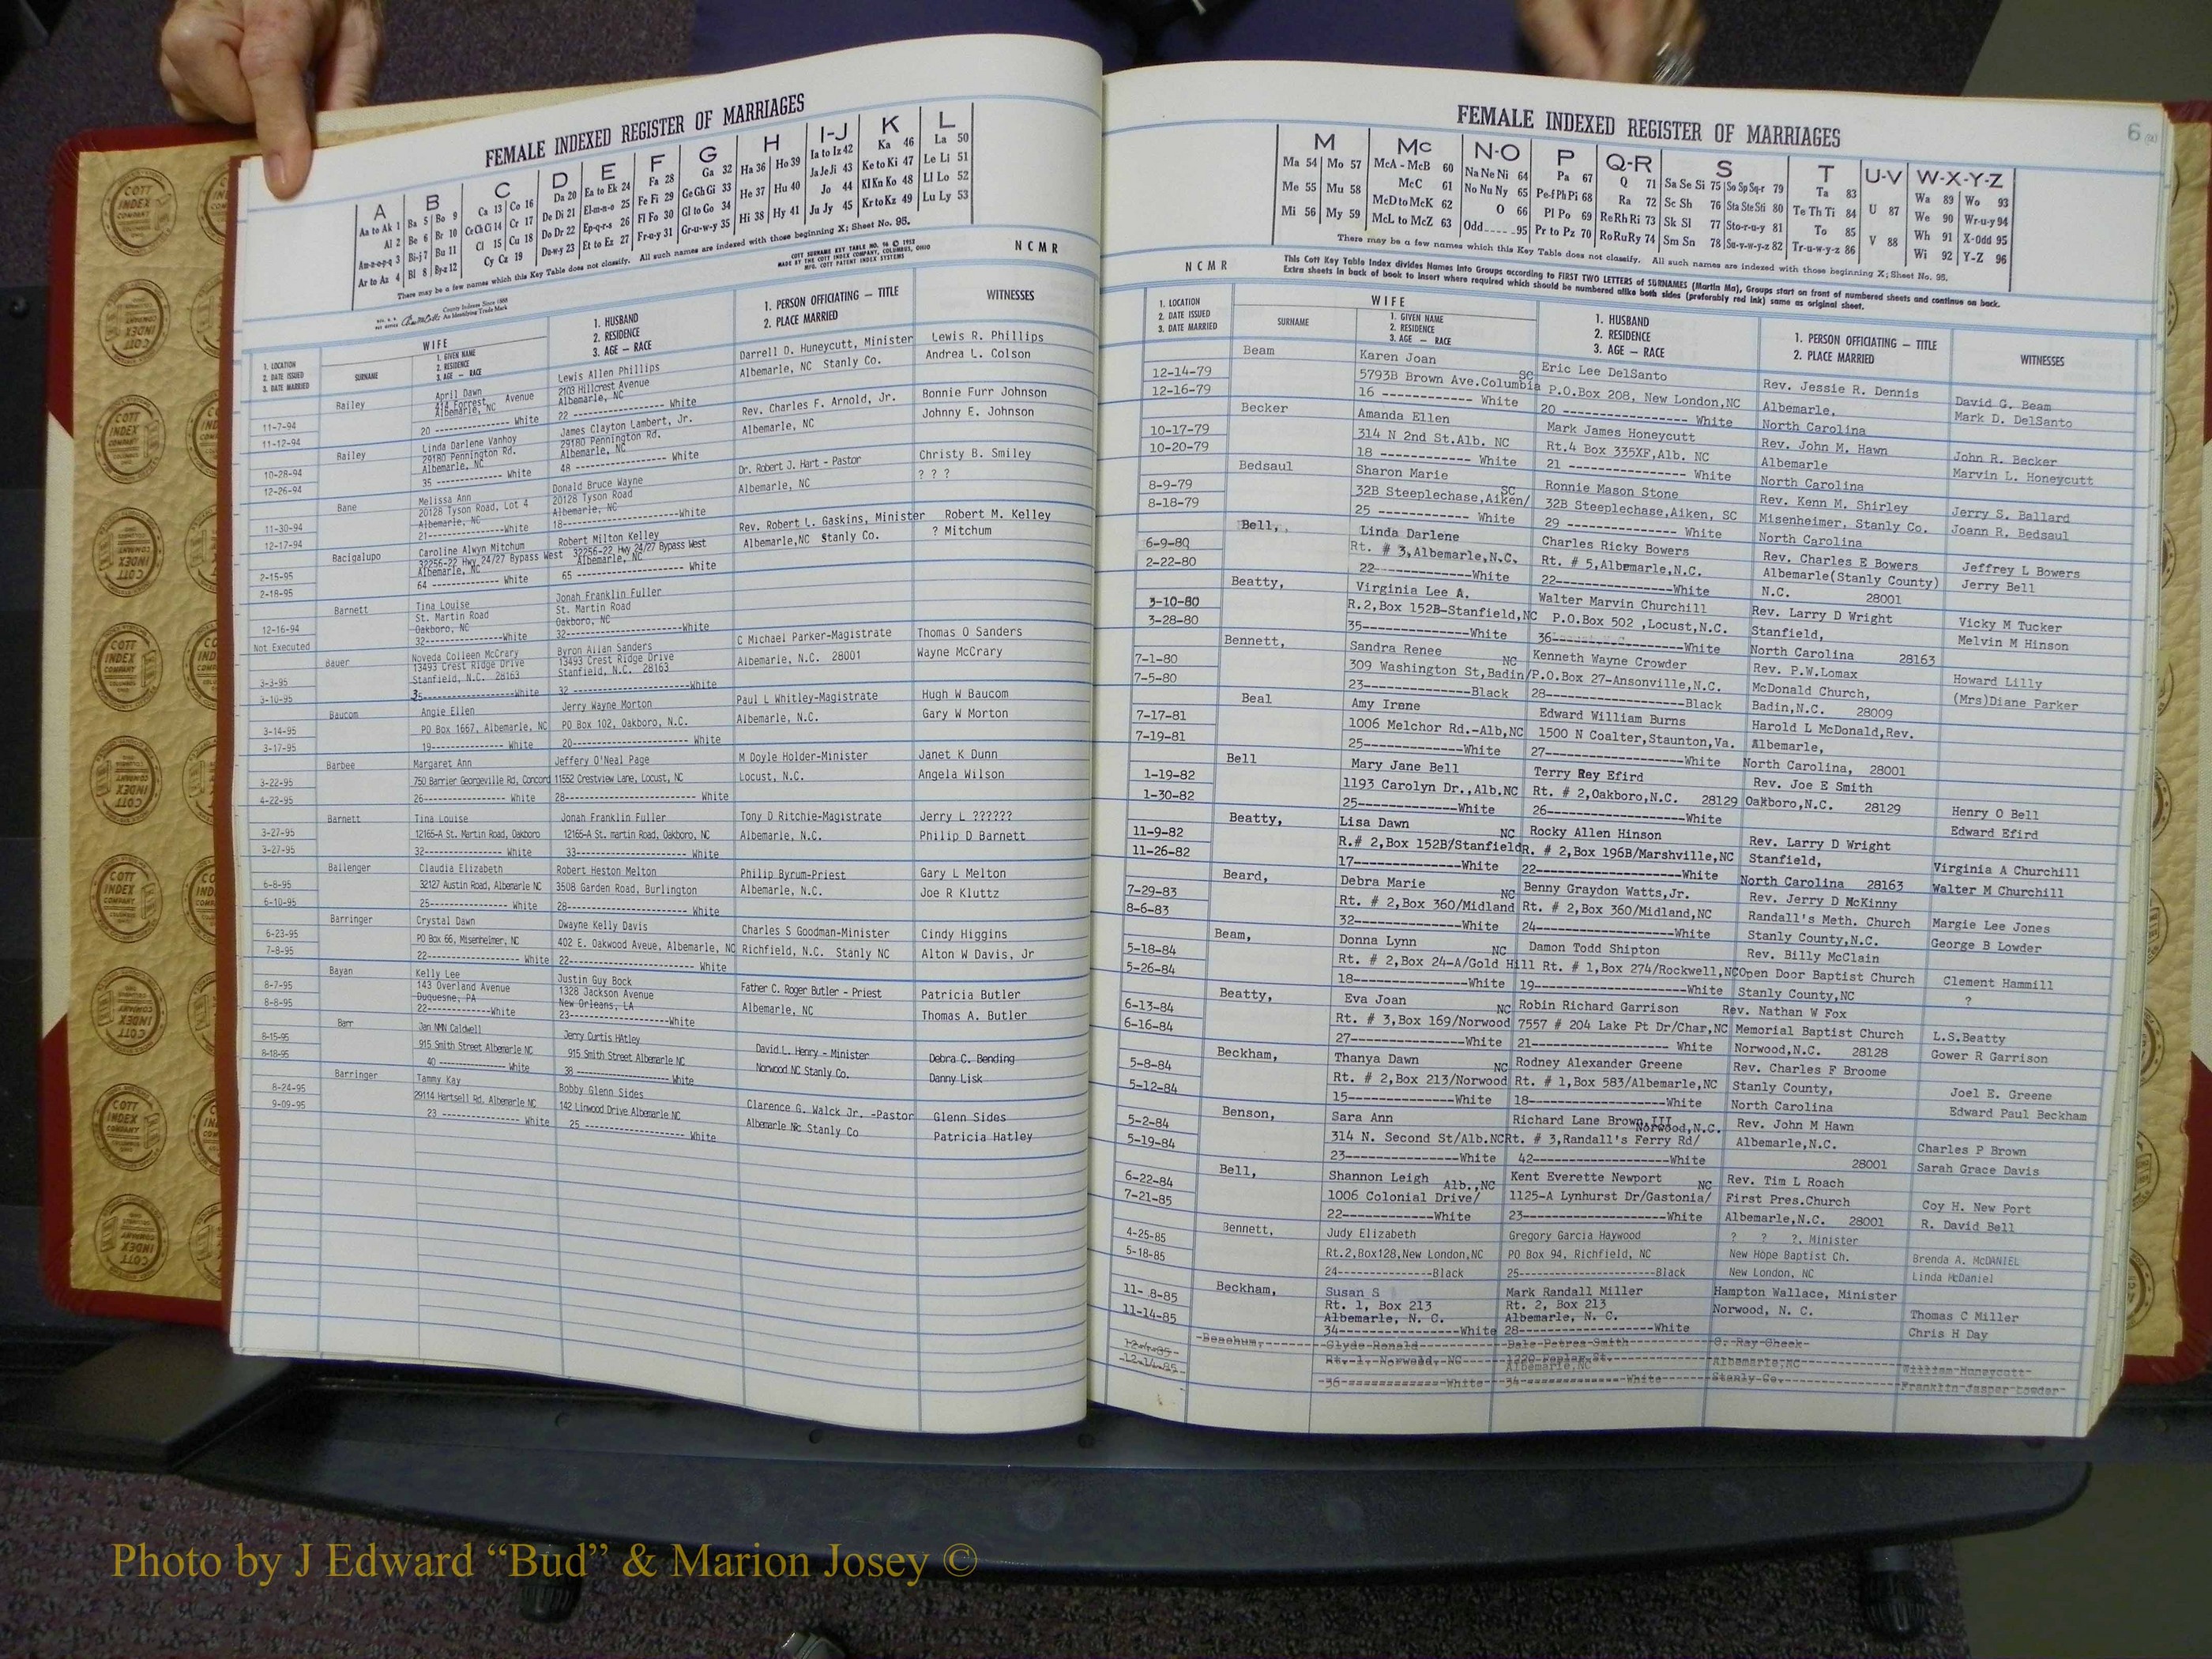 FEMALE INDEXED REGISTER OF MARRIAGES
A B C D E F G H I-J K L
Aa to Ak 1 Ba 5 Bo 9 Ca 13 Co 16 Da 20 Ea to Ek 24 Fa 28 Ga 32 Ha 36 Ho 39 Ia to Iz 42 Ka 46 La 50
Al 2 Be 6 Br 10 Ce Ch Ci 14 Cr 17 De Di 21 El-m-n-o 25 Fe Fi 29 Ge Gh Gi 33 He 37 Hu 40 Ja Je Ji 43 Ke to Ki 47 Le Li 51
Am-n-o-p-q 3 Bi-j 7 Bu 11 Cl 15 Cu 18 Do Dr 22 Ep-q-r-s 26 Fl Fo 30 Gl to Go 34 Hi 38 Hy 41 Jo 44 Kl Kn Ko 48 Ll Lo 52
Ar to Az 4 Bl 8 By-z 12 Cy Cz 19 Du-w-y 23 Et to Ez 27 Fr-u-y 31 Gr-u-w-y 35 Ju Jy 45 Kr to Kz 49 Lu Ly 53
There may be a few names which this Key Table does not classify. All such names are indexed with those beginning X; Sheet No. 95.
COTT SURNAME KEY TABLE NO. 96 © 1912
MADE BY THE COTT INDEX COMPANY, COLUMBUS, OHIO
MFG. COTT PATENT INDEX SYSTEMS
NCMR
County Indexes Since 1888
An Identifying Trade Mark
1. LOCATION
2. DATE ISSUED
3. DATE MARRIED
WIFE
SURNAME
1. GIVEN NAME
2. RESIDENCE
3. AGE — RACE
1. HUSBAND
2. RESIDENCE
3. AGE — RACE
1. PERSON OFFICIATING — TITLE
2. PLACE MARRIED
WITNESSES
Bailey April Dawn Lewis Allen Phillips Darrell D. Huneycutt, Minister Lewis R. Phillips
414 Forrest Avenue 2103 Hillcrest Avenue Albemarle, NC Stanly Co. Andrea L. Colson
11-7-94 Albemarle, NC Albemarle, NC
11-12-94 20 ---------- White 22 ---------- White
Bailey Linda Darlene Vanhoy James Clayton Lambert, Jr. Rev. Charles F. Arnold, Jr. Bonnie Furr Johnson
29180 Pennington Rd. 29180 Pennington Rd. Albemarle, NC Johnny E. Johnson
10-28-94 Albemarle, NC Albemarle, NC
12-26-94 35 ---------- White 48 ---------- White
Bane Melissa Ann Donald Bruce Wayne Dr. Robert J. Hart - Pastor Christy B. Smiley
20128 Tyson Road, Lot 4 20128 Tyson Road Albemarle, NC ? ? ?
11-30-94 Albemarle, NC Albemarle, NC
12-17-94 21----------White 18----------White
Bacigalupo Caroline Alwyn Mitchum Robert Milton Kelley Rev. Robert L. Gaskins, Minister Robert M. Kelley
32256-22 Hwy 24/27 Bypass West 32256-22 Hwy 24/27 Bypass West Albemarle,NC Stanly Co. ? Mitchum
2-15-95 Albemarle, NC Albemarle, NC
2-18-95 64 ---------- White 65 ---------- White
Barnett Tina Louise Jonah Franklin Fuller
St. Martin Road St. Martin Road
12-16-94 Oakboro, NC Oakboro, NC
Not Executed 32----------White 32----------White
Bauer Noveda Colleen McCrary Byron Allan Sanders C Michael Parker-Magistrate Thomas O Sanders
13493 Crest Ridge Drive 13493 Crest Ridge Drive Albemarle, N.C. 28001 Wayne McCrary
3-3-95 Stanfield, N.C. 28163 Stanfield, N.C. 28163
3-10-95 35----------White 32 ----------White
Baucom Angie Ellen Jerry Wayne Morton Paul L Whitley-Magistrate Hugh W Baucom
3-14-95 PO Box 1667, Albemarle, NC PO Box 102, Oakboro, N.C. Albemarle, N.C. Gary W Morton
3-17-95 19---------- White 20---------- White
Barbee Margaret Ann Jeffery O'Neal Page M Doyle Holder-Minister Janet K Dunn
3-22-95 750 Barrier Georgeville Rd, Concord 11552 Crestview Lane, Locust, NC Locust, N.C. Angela Wilson
4-22-95 26---------- White 28---------- White
Barnett Tina Louise Jonah Franklin Fuller Tony D Ritchie-Magistrate Jerry L ??????
3-27-95 12165-A St. Martin Road, Oakboro 12165-A St. martin Road, Oakboro, NC Albemarle, N.C. Philip D Barnett
3-27-95 32---------- White 33---------- White
Ballenger Claudia Elizabeth Robert Heston Melton Philip Byrum-Priest Gary L Melton
6-8-95 32127 Austin Road, Albemarle NC 3508 Garden Road, Burlington Albemarle, N.C. Joe R Kluttz
6-10-95 25---------- White 28---------- White
Barringer Crystal Dawn Dwayne Kelly Davis Charles S Goodman-Minister Cindy Higgins
6-23-95 PO Box 66, Misenheimer, NC 402 E. Oakwood Aveue, Albemarle, NC Richfield, N.C. Stanly NC Alton W Davis, Jr
7-8-95 22---------- White 22---------- White
Bayan Kelly Lee Justin Guy Bock Father C. Roger Butler - Priest Patricia Butler
8-7-95 143 Overland Avenue 1328 Jackson Avenue Albemarle, NC Thomas A. Butler
8-8-95 Duquesne, PA New Orleans, LA
22----------White 23----------White
Barr Jan NMN Caldwell Jerry Curtis HAtley David L. Henry - Minister Debra C. Bending
8-15-95 915 Smith Street Albemarle NC 915 Smith Street Albemarle NC Norwood NC Stanly Co. Danny Lisk
8-18-95 40 ---------- White 38 ---------- White
Barringer Tammy Kay Bobby Glenn Sides Clarence G. Walck Jr. -Pastor Glenn Sides
8-24-95 29114 Hartsell Rd. Albemarle NC 142 Linwood Drive Albemarle NC Albemarle Nc Stanly Co Patricia Hatley
9-09-95 23 ---------- White 25 ---------- White
FEMALE INDEXED REGISTER OF MARRIAGES
6
M Mc N-O P Q-R S T U-V W-X-Y-Z
Ma 54 Mo 57 McA - McB 60 Na Ne Ni 64 Pa 67 Q 71 Sa Se Si 75 So Sp Sq-r 79 Ta 83 U 87 Wa 89 Wo 93
Me 55 Mu 58 McC 61 No Nu Ny 65 Pe-f Ph Pi 68 Ra 72 Sc Sh 76 Sta Ste Sti 80 Te Th Ti 84 V 88 We 90 Wr-u-y 94
Mi 56 My 59 McD to McK 62 O 66 Pl Po 69 Re Rh Ri 73 Sk Sl 77 Sto-r-u-y 81 To 85 Wh 91 X-Odd 95
McL to McZ 63 Odd 95 Pr to Pz 70 Ro Ru Ry 74 Sm Sn 78 Su-v-w-y-z 82 Tr-u-w-y-z 86 Wi 92 Y-Z 96
There may be a few names which this Key Table does not classify. All such names are indexed with those beginning X; Sheet No. 95.
NCMR
This Cott Key Table Index divides Names into Groups according to FIRST TWO LETTERS of SURNAMES (Martin Ma), Groups start on front of numbered sheets and continue on back.
Extra sheets in back of book to insert where required which should be numbered alike both sides (preferably red ink) same as original sheet.
1. LOCATION
2. DATE ISSUED
3. DATE MARRIED
WIFE
SURNAME
1. GIVEN NAME
2. RESIDENCE
3. AGE — RACE
1. HUSBAND
2. RESIDENCE
3. AGE — RACE
1. PERSON OFFICIATING — TITLE
2. PLACE MARRIED
WITNESSES
Beam Karen Joan Eric Lee DelSanto Rev. Jessie R. Dennis David G. Beam
12-14-79 5793B Brown Ave.Columbia SC P.O.Box 208, New London,NC Albemarle, Mark D. DelSanto
12-16-79 16 ---------- White 20 ---------- White North Carolina
Becker Amanda Ellen Mark James Honeycutt Rev. John M. Hawn John R. Becker
10-17-79 314 N 2nd St.Alb. NC Rt.4 Box 335XF,Alb. NC Albemarle Marvin L. Honeycutt
10-20-79 18 ---------- White 21 ---------- White North Carolina
Bedsaul Sharon Marie Ronnie Mason Stone Rev. Kenn M. Shirley Jerry S. Ballard
8-9-79 32B Steeplechase,Aiken/ SC 32B Steeplechase,Aiken, SC Misenheimer, Stanly Co. Joann R. Bedsaul
8-18-79 25 ---------- White 29 ---------- White North Carolina
Bell, Linda Darlene Charles Ricky Bowers Rev. Charles E Bowers Jeffrey L Bowers
6-9-80 Rt. # 3,Albemarle,N.C. Rt. # 5,Albemarle,N.C. Albemarle(Stanly County) Jerry Bell
2-22-80 22----------White 22----------White N.C. 28001
Beatty, Virginia Lee A. Walter Marvin Churchill Rev. Larry D Wright Vicky M Tucker
3-10-80 R.2,Box 152B-Stanfield,NC P.O.Box 502 ,Locust,N.C. Stanfield, Melvin M Hinson
3-28-80 35----------White 36----------White North Carolina 28163
Bennett, Sandra Renee Kenneth Wayne Crowder Rev. P.W.Lomax Howard Lilly
7-1-80 309 Washington St,Badin/ NC P.O.Box 27-Ansonville,N.C. McDonald Church, (Mrs)Diane Parker
7-5-80 23----------Black 28----------Black Badin,N.C. 28009
Beal Amy Irene Edward William Burns Harold L McDonald,Rev.
7-17-81 1006 Melchor Rd.-Alb,NC 1500 N Coalter,Staunton,Va. Albemarle,
7-19-81 25----------White 27----------White North Carolina, 28001
Bell Mary Jane Bell Terry Ray Efird Rev. Joe E Smith Henry O Bell
1-19-82 1193 Carolyn Dr.,Alb.NC Rt. # 2,Oakboro,N.C. 28129 Oakboro,N.C. 28129 Edward Efird
1-30-82 25----------White 26----------White
Beatty, Lisa Dawn Rocky Allen Hinson Rev. Larry D Wright Virginia A Churchill
11-9-82 R.# 2,Box 152B/Stanfield NC R. # 2,Box 196B/Marshville,NC Stanfield, Walter M Churchill
11-26-82 17----------White 22----------White North Carolina 28163
Beard, Debra Marie Benny Graydon Watts,Jr. Rev. Jerry D McKinny Margie Lee Jones
7-29-83 Rt. # 2,Box 360/Midland NC Rt. # 2,Box 360/Midland,NC Randall's Meth. Church George B Lowder
8-6-83 32----------White 24----------White Stanly County,N.C.
Beam, Donna Lynn Damon Todd Shipton Rev. Billy McClain Clement Hammill
5-18-84 Rt. # 2,Box 24-A/Gold Hill NC Rt. # 1,Box 274/Rockwell,NC Open Door Baptist Church ?
5-26-84 18----------White 19----------White Stanly County,NC
Beatty, Eva Joan Robin Richard Garrison Rev. Nathan W Fox L.S.Beatty
6-13-84 Rt. # 3,Box 169/Norwood NC 7557 # 204 Lake Pt Dr/Char,NC Memorial Baptist Church Gower R Garrison
6-16-84 27----------White 21---------- White Norwood,N.C. 28128
Beckham, Thanya Dawn Rodney Alexander Greene Rev. Charles F Broome Joel E. Greene
5-8-84 Rt. # 2,Box 213/Norwood NC Rt. # 1,Box 583/Albemarle,NC Stanly County, Edward Paul Beckham
5-12-84 15----------White 18----------White North Carolina
Benson, Sara Ann Richard Lane Brown,III Rev. John M Hawn Charles P Brown
5-2-84 314 N. Second St/Alb.NC Rt. # 3,Randall's Ferry Rd/ Norwood,N.C. Albemarle,N.C. Sarah Grace Davis
5-19-84 23----------White 42----------White 28001
Bell, Shannon Leigh Kent Everette Newport Rev. Tim L Roach Coy H. New Port
6-22-84 1006 Colonial Drive/ Alb.,NC 1125-A Lynhurst Dr/Gastonia/ NC First Pres.Church R. David Bell
7-21-85 22----------White 23----------White Albemarle,N.C. 28001
Bennett, Judy Elizabeth Gregory Garcia Haywood ? ? ?, Minister Brenda A. McDANIEL
4-25-85 Rt.2,Box128,New London,NC PO Box 94, Richfield, NC New Hope Baptist Ch. Linda McDaniel
5-18-85 24----------Black 25----------Black New London, NC
Beckham, Susan S Mark Randall Miller Hampton Wallace, Minister Thomas C Miller
11- 8-85 Rt. 1, Box 213 Rt. 2, Box 213 Norwood, N. C. Chris H Day
11-14-85 Albemarle, N. C. Albemarle, N. C.
34----------White 28----------White
Beachum, Clyde Ronald Smith C. Ray Cheek William Honeycutt
Rt. 1, Norwood, NC Albemarle,NC Albemarle,NC Franklin Jasper Lowder
12-14-85 36 ---------- White 34 ---------- White Stanly Co.
COTT INDEX COMPANY COLUMBUS, OHIO
Photo by J Edward “Bud” & Marion Josey ©